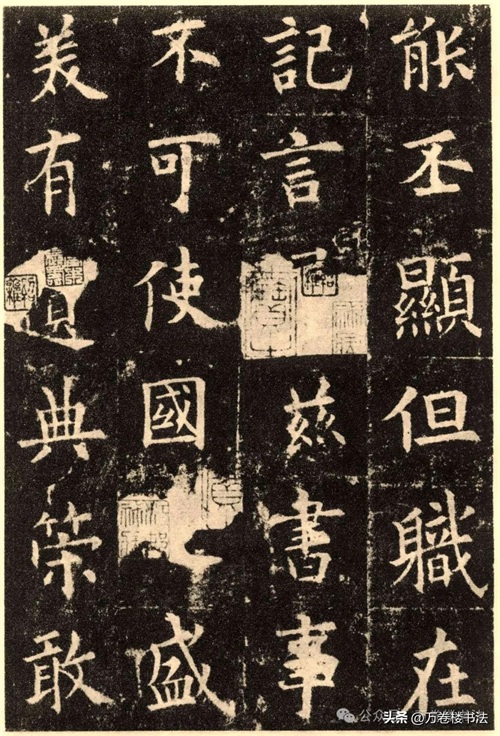 能丕顯但職在
記言茲書事
不可使國盛
美有典策敢
头条 @万卷楼书法